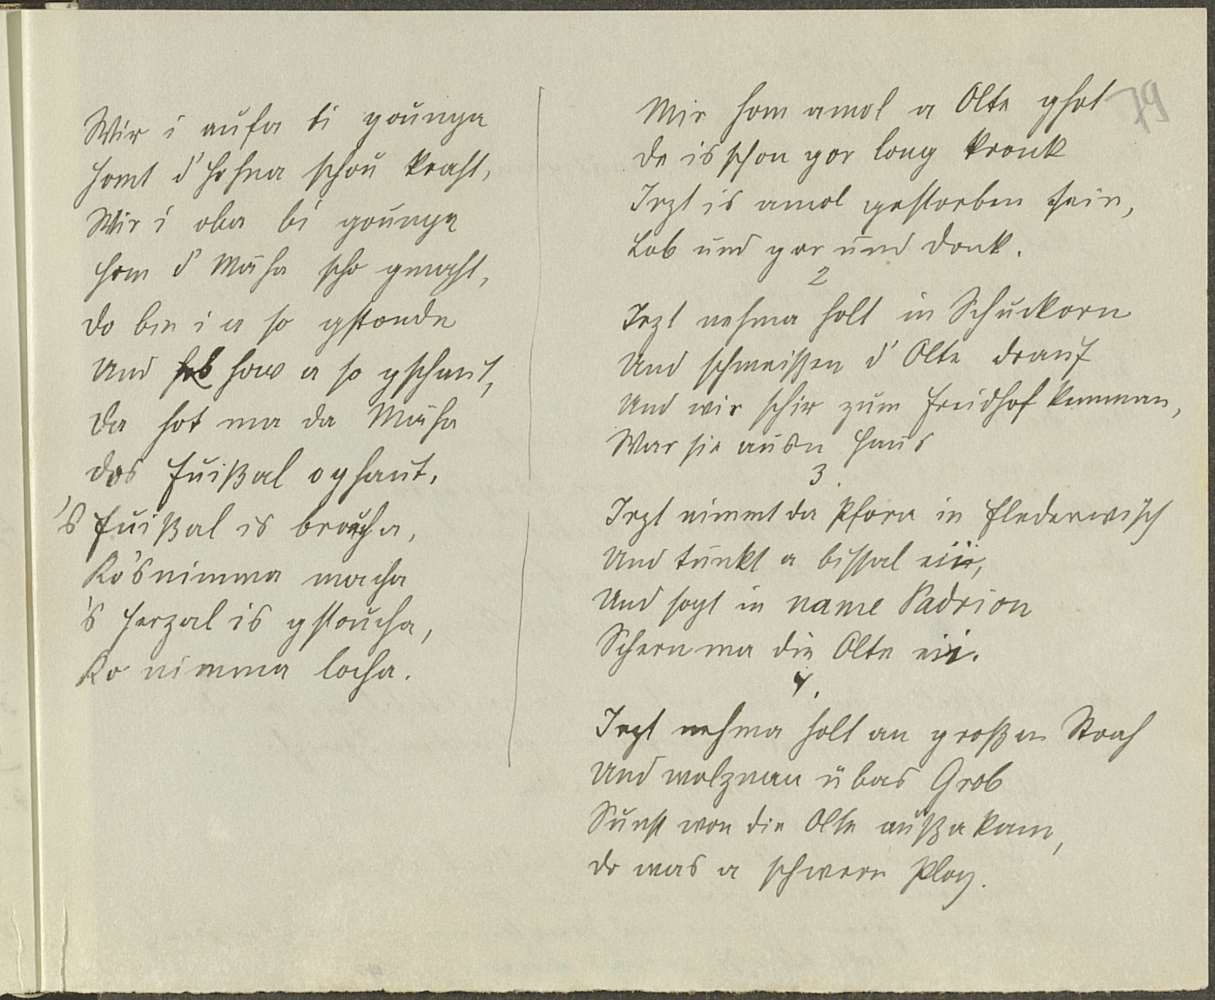 79
Wir i aufa bi gounga
Homt d' Hohna schou kraht,
Wir i oba bi gounga
Hom d' Mäha scho gmaht,
Do bin i a so gstonde
Und how a so gschaut,
Da hot ma da Mäha
Das Fuißal oghaut.
's Fuißal is brocha,
Ko's nimma macha
's Herzal is gstoucha,
Ko nimma locha.
Mir hom amol a Olte ghot
De is schon gor long kronk
Iezt is amol gestorben sein,
Lob und gor und Donk.
2
Iezt nehma holt in Schuckorn
Und schmeißen d' Olte drauf
Und wir schir zum Freidhof kumman,
War sie ausn Haus
3.
Iezt nimmt da Pfora in Flederwisch
Und tunkt a bissal eii,
Und sogt in name Padrion
Schern ma die Olte eii.
4.
Iezt nehma holt an großen Stoah
Und wolznan übas Grob
Sunst won die Olte außa kam,
Do was a schwere Plog.